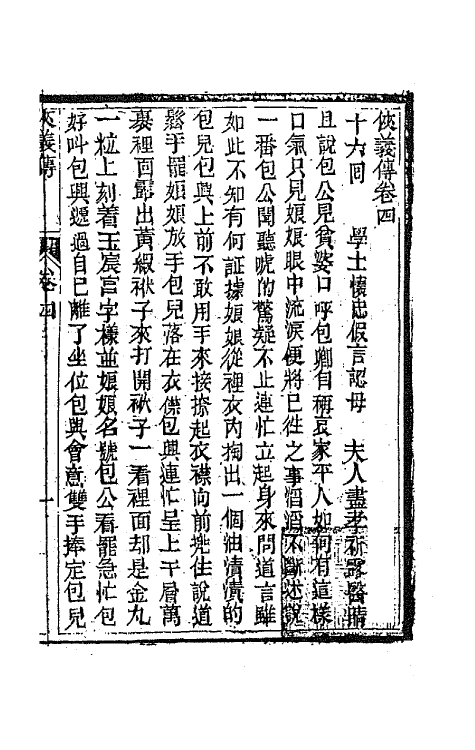 俠義傳卷四
十六回　學士懷忠假言認母　夫人盡孝祈露醫睛
且說包公見貧婆口呼包卿自稱哀家平人如何有這樣
口氣只見娘娘眼中流淚便將已徃之事滔滔不斷述說
一番包公聞聽唬的驚疑不止連忙立起身來問道言雖
如此不知有何証據娘娘從裡衣內掏出一個油漬漬的
包兒包興上前不敢用手來接撩起衣襟向前兜住說道
鬆手罷娘娘放手包兒落在衣襟包興連忙呈上千層萬
裹裡面露出黃緞袱子來打開袱子一看裡面却是金丸
一粒上刻着玉宸宮字樣並娘娘名號包公看罷急忙包
好叫包興遞過自己離了坐位包興會意雙手捧定包兒
俠義傳
卷四
一